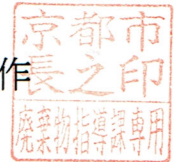 作
京都市
長之印
廃棄物指導課専用